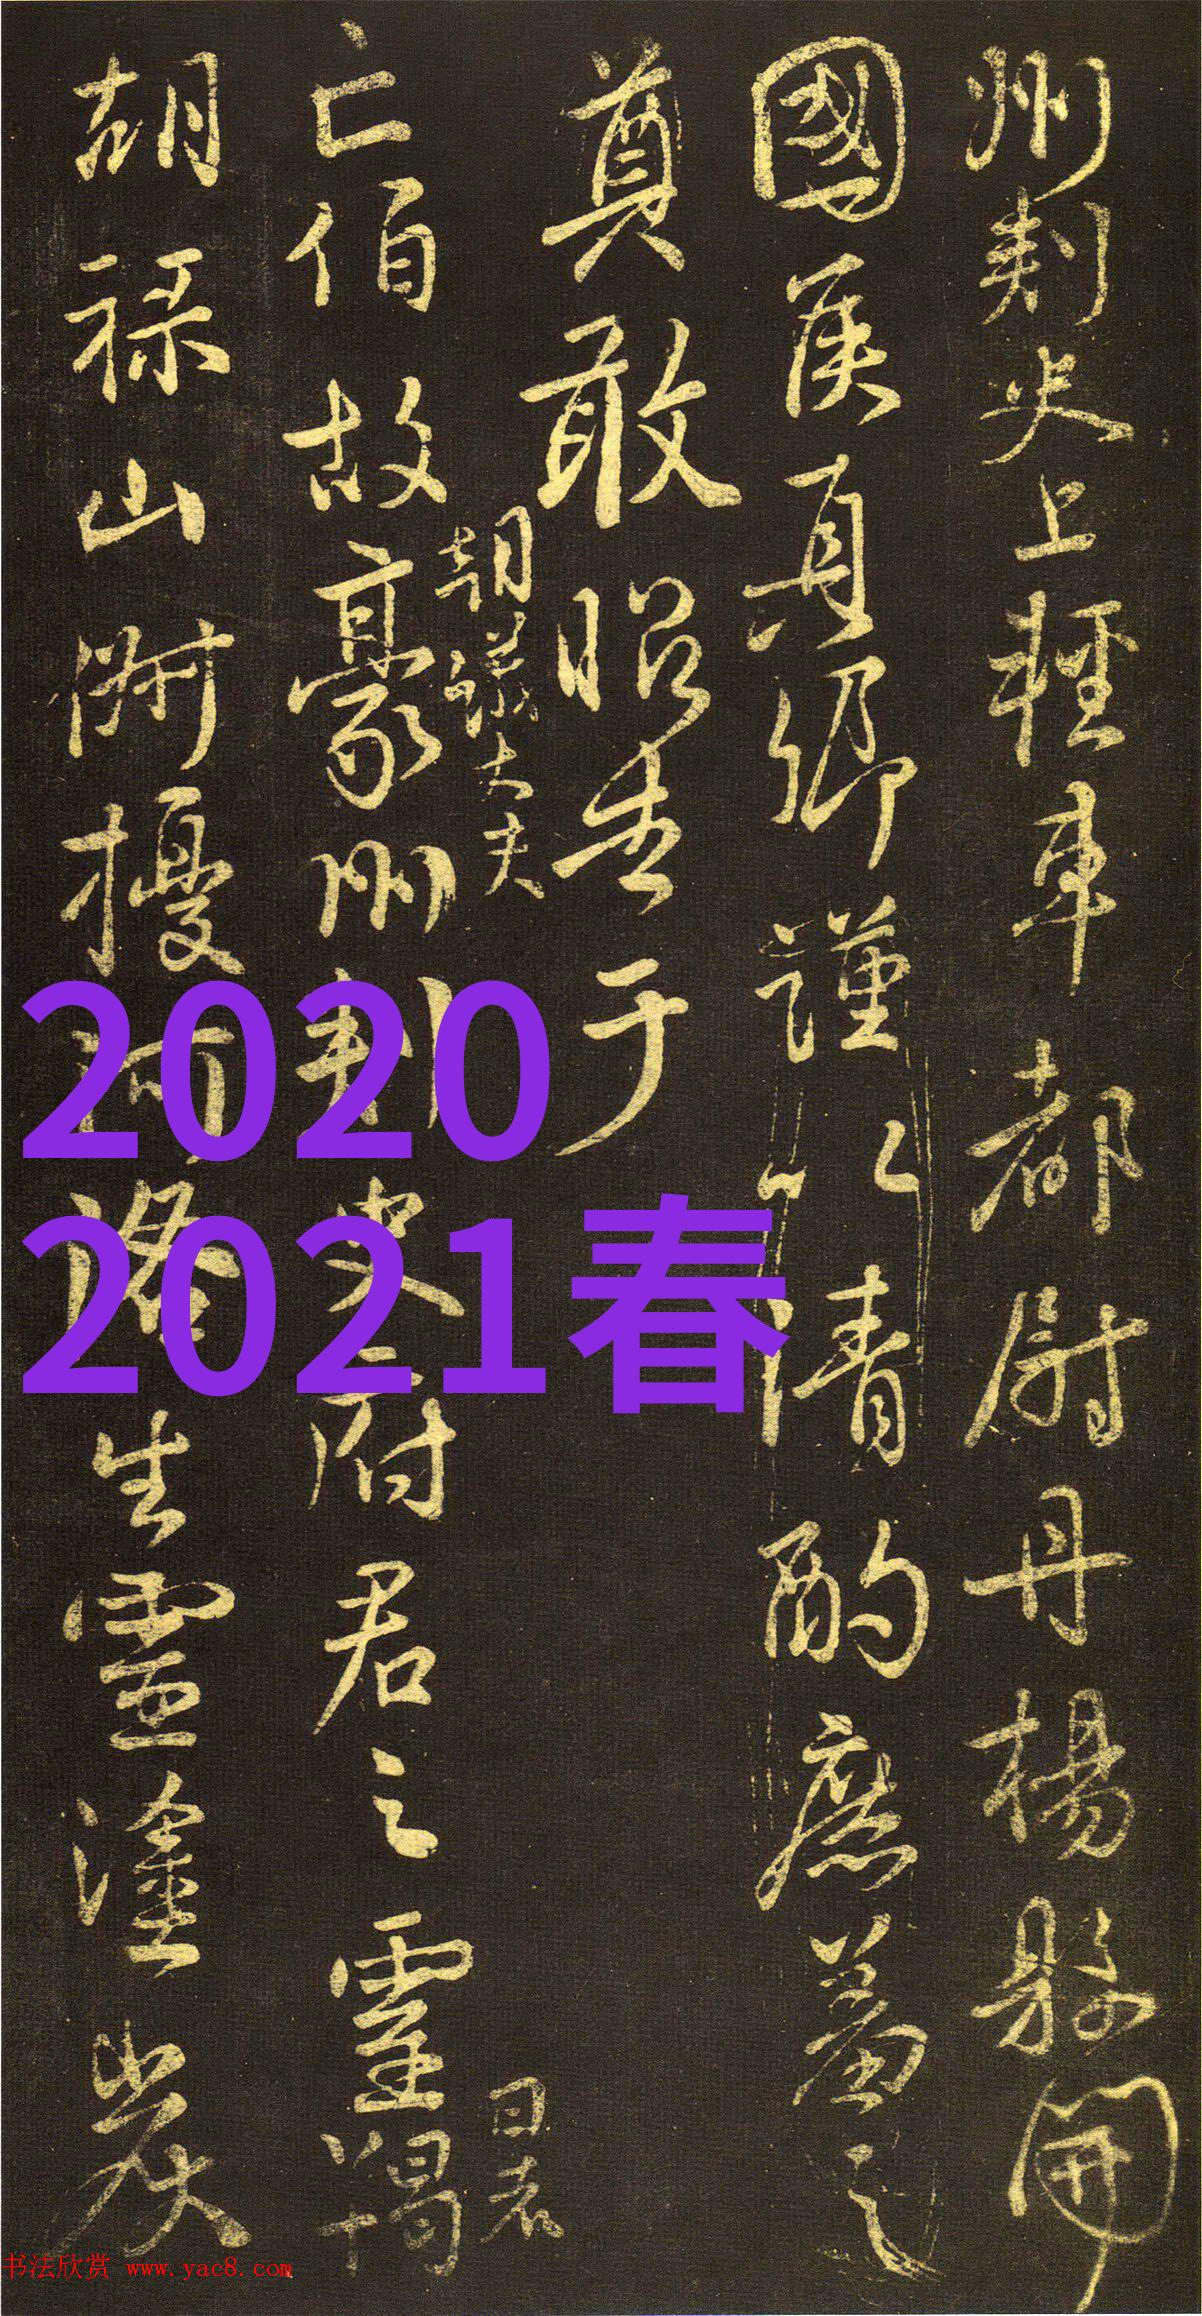 州刺史上輕車都尉丹楊縣開
國侯真卿謹以清酌庶羞之
奠敢昭告于
朝議大夫
日者
亡伯故豪州刺史府君之靈羯
胡禄山俶擾河洛生靈塗炭
2020
2021春
书法欣赏 www.yac8.com